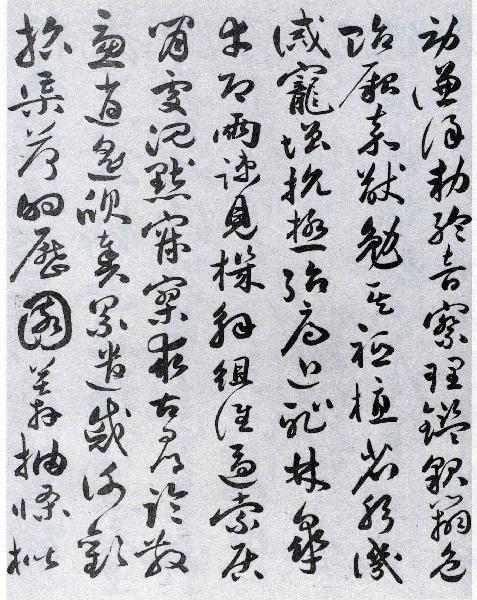 勞謙謹敕聆音察理鑑貌辨色
貽厥嘉猷勉其祗植省躬譏
誡寵增抗極殆辱近恥林皋
幸即兩疏見機解組誰逼索居
閒處沉默寂寥求古尋論散
慮逍遙欣奏累遣慼謝歡
招渠荷的歷園莽抽條枇